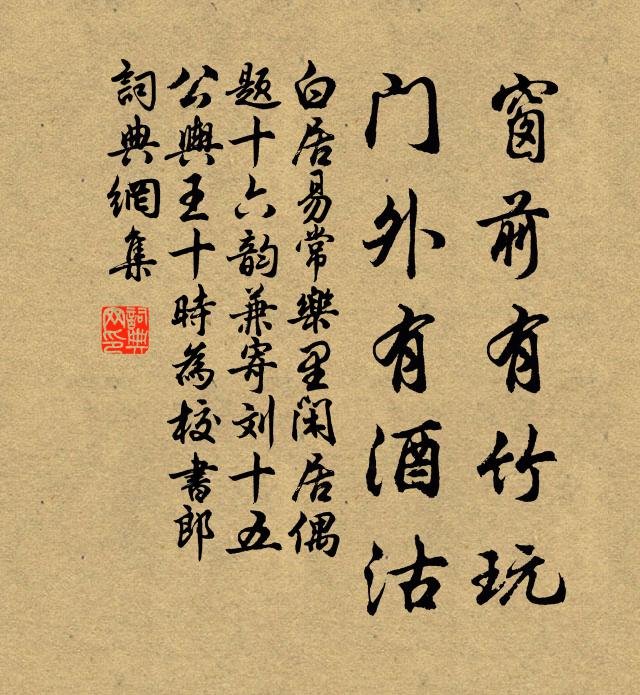 窗前有竹玩
门外有酒沽
白居易常樂里闲居偶
题十六韵兼寄刘十五
公輿王十時為校書郎
詞典網集
詞典
网印